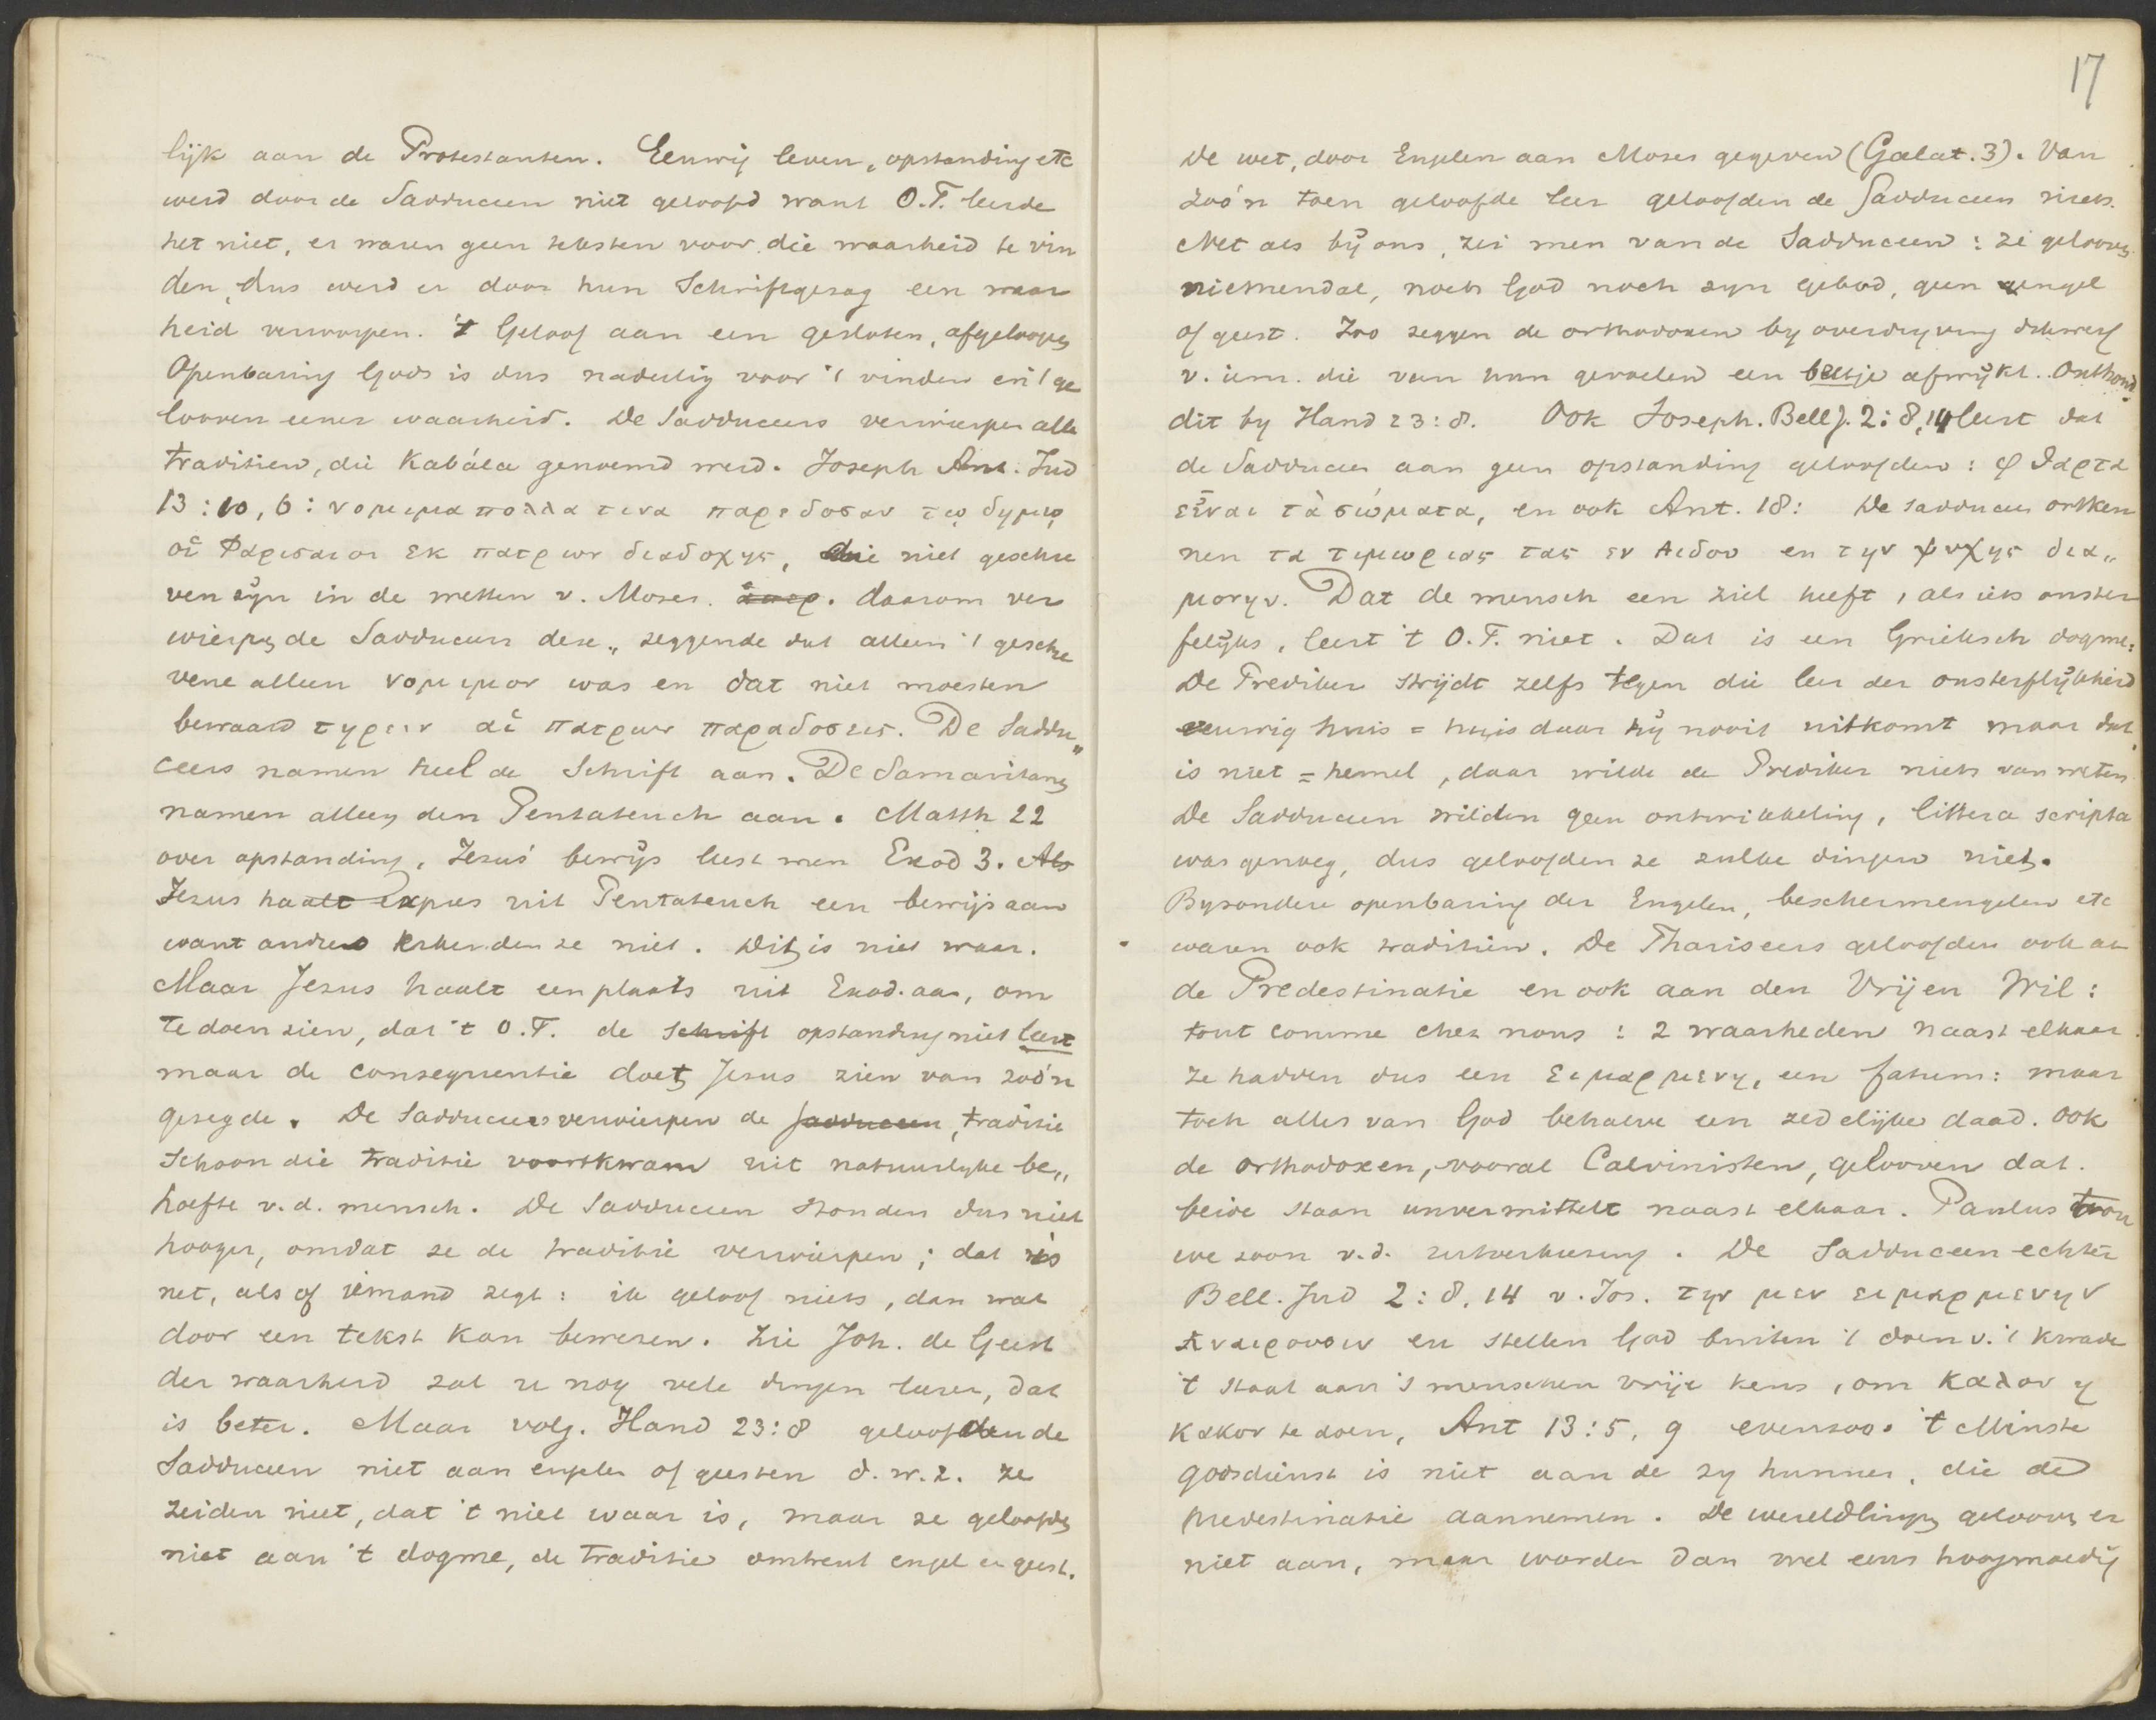 lijk aan de Protestanten. Eeuwig leven, opstanding etc
werd door de Sadduceen niet geloofd want O.T. leerde
het niet, er waren geen teksten voor die waarheid te vin
den, dus werd er door hun Schriftgezag een waar
heid verworpen. 't Geloof aan een gesloten, afgeloopen
Openbaring Gods is dus nadeelig voor 't vinden en 't ge
looven eener waarheid. De Sadduceers verwierpen alle
traditien, die Kabála genoemd werd. Joseph Ant. Jud
13:10,6: νομιμα πολλα τινα παρεδοσαν τῳ δημῳ
οἱ Φαρισαιοι εκ πατερων διαδοχης, die niet geschre
ven zijn in de wetten v. Moses. daarom ver
wierpen de Sadduceers deze„ zeggende dat alleen 't geschre
vene alleen νομιμον was en dat niet moesten
bewaard τηρειν αἱ πατερων παραδοσεις. De Saddu„
ceers namen heel de Schrift aan. De Samaritanen
namen alleen den Pentateuch aan. Matth 22
over opstanding, Jezus' bewijs leest men Exod 3. Als
Jezus haalt expres uit Pentateuch een bewijs aan
want anders erkenden ze niet. Dit is niet waar.
Maar Jezus haalt een plaats uit Exod. aan, om
te doen zien, dat 't O.T. de Schrift opstanding niet leert
maar de consequentie doet Jesus zien van zoo'n
gezegde. De Sadduceers verwierpen de Sadduceen, traditie
Schoon die traditie voortkwam uit natuurlijke be„
hoefte v.d. mensch. De Sadduceen stonden dus niet
hooger, omdat ze de traditie verwierpen; dat is
net, als of iemand zegt: ik geloof niets, dan wat
door een tekst kan bewezen. Zie Joh. de Geest
der waarheid zal u nog vele dingen leeren, dat
is beter. Maar volg. Hand 23:8 geloofden de
Sadduceen niet aan engelen of geesten d.w.z. ze
zeiden niet, dat 't niet waar is, maar ze geloofden
niet aan 't dogme, de traditie omtrent engel en geest.
17
De wet, door Engelen aan Moses gegeven (Galat. 3). Van
zoo'n toen geloofde leer geloofden de Sadduceen niets.
Net als bij ons, zei men van de Sadduceen: ze gelooven
niemendal, noch God noch zijn gebod, geen engel
of geest. Zoo zeggen de orthodoxen by overdrijving dikwerf
v. iem. die van hun gevoelen een beetje afwijkt. Onthoud
dit by Hand 23:8. Ook Joseph. Bell J. 2:8,14 leert dat
de Sadducees aan geen opstanding geloofden: φθαρτα
εἶναι τὰ σώματα, en ook Ant. 18: De Sadducees ontken
nen τα τιμωριας τας εν Αιδου en την ψυχης δια„
μονην. Dat de mensch een ziel heeft, als iets onster
felijks, leert 't O.T. niet. Dat is een Grieksch dogme:
De Prediker strijdt zelfs tegen die leer der onsterflijkheid
eeuwig huis = huis daar hij nooit uitkomt maar dat
is niet = hemel, daar wilde de Prediker niets van weten.
De Sadduceen wilden geen ontwikkeling, littera scripta
was genoeg, dus geloofden ze zulke dingen niet.
Byzondere openbaring der Engelen, beschermengelen etc
waren ook traditien. De Phariseers geloofden ook aan
de Predestinatie en ook aan den Vrijen Wil:
tout comme chez nous: 2 waarheden naast elkaar
ze hadden dus een ειμαρμενη, een fatum: maar
toch alles van God behalve een zedelijke daad. Ook
de orthodoxen, vooral Calvinisten, gelooven dat.
beide staan unvermittelt naast elkaar. Paulus trou
we zoon v.d. uitverkiezing. De Sadduceen echter
Bell. Jud 2:8.14 v. Jos. την μεν ειμαρμενην
αναιρουσιν en stellen God buiten 't doen v. 't kwade
't staat aan 's menschen vrije keus, om καλον η
κακον te doen, Ant 13:5,9 evenzoo. 't Minste
godsdienst is niet aan de zy hunner, die de
predestinatie aannemen. De wereldlingen gelooven er
niet aan, maar worden dan wel eens hoogmoedig